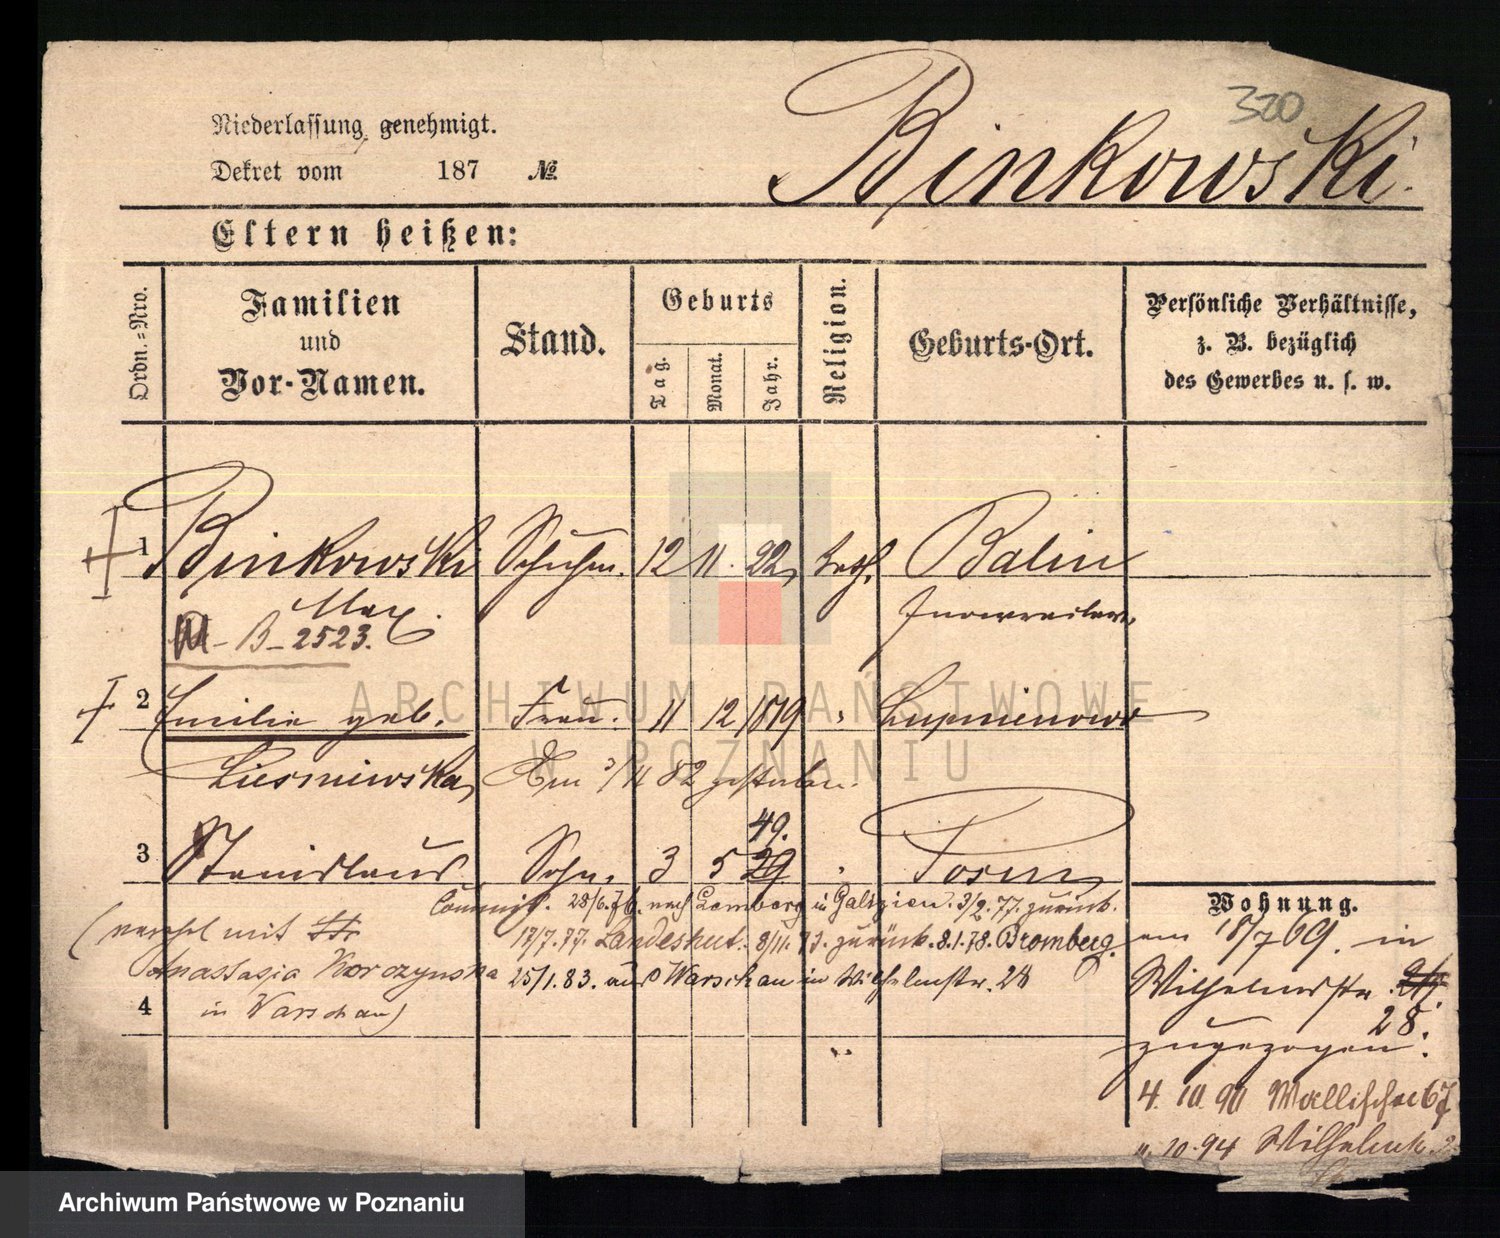 320
Niederlassung genehmigt.
Binkowski.
Dekret vom 187 №
Eltern heißen:
Ordn.-Nro.
Familien
und
Vor-Namen.
Stand.
Geburts
Tag.
Monat.
Jahr.
Religion.
Geburts-Ort.
Persönliche Verhältnisse,
z. B. bezüglich
des Gewerbes u. s. w.
1 Binkowski Schuhm. 12 11. 22, kath. Balin
Max.
B-2523.
2 Emilie geb. Frau. 11 12 1819 Lupimowo
Am 3/11 82 gestorben.
49.
3 Stanislaus Sohn. 3 5 29 Posen
28/6. 76. nach Lemberg in Galizien. 3/2. 77. zurück.
17/7. 77. Landeshut. 8/11. 77. zurück. 8.1.78. Bromberg.
(verehel mit
Anastasia Korczynska 25/1.83. aus Warschau in Wilhelmstr. 28
4 in Warschau)
Wohnung.
am 18/7 69. in
Wilhelmstr. 24.
28.
zugezogen.
4. 10. 90 Wallischei 67
10.94 Wilhelmstr.
ARCHIWUM PAŃSTWOWE
W POZNANIU
Archiwum Państwowe w Poznaniu